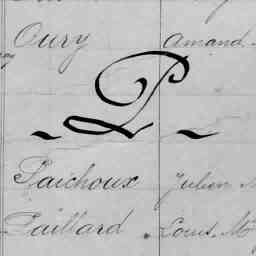 Oury Amand
~ P ~
Paichoux Julien
Paillard Louis M